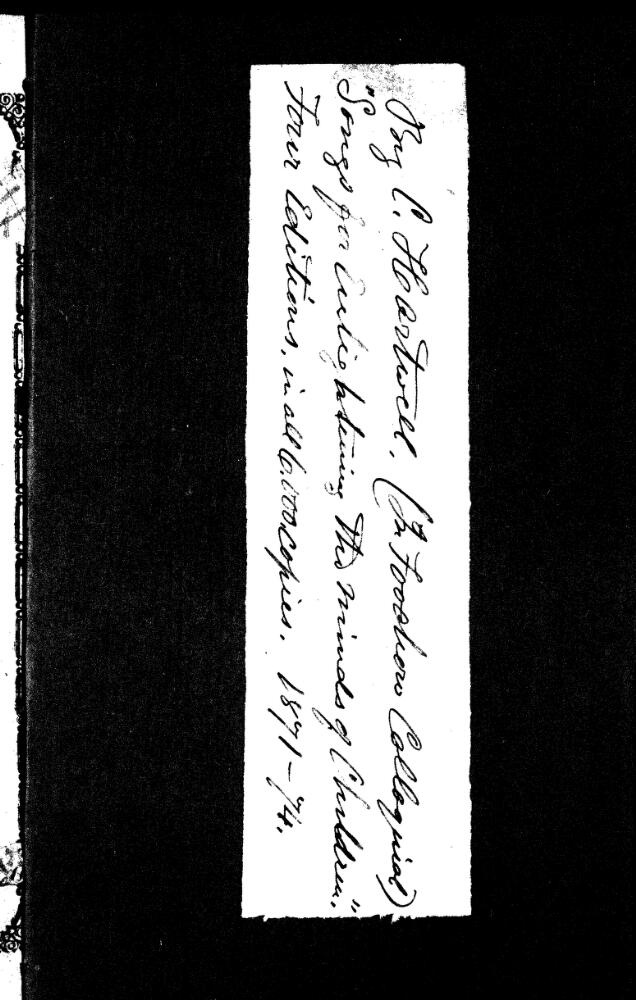 By C. Hartwell. (In Foochow Colloquial)
"Songs for Enlightening the minds of Children."
Four Editions, in all 6,000 copies. 1871–74.